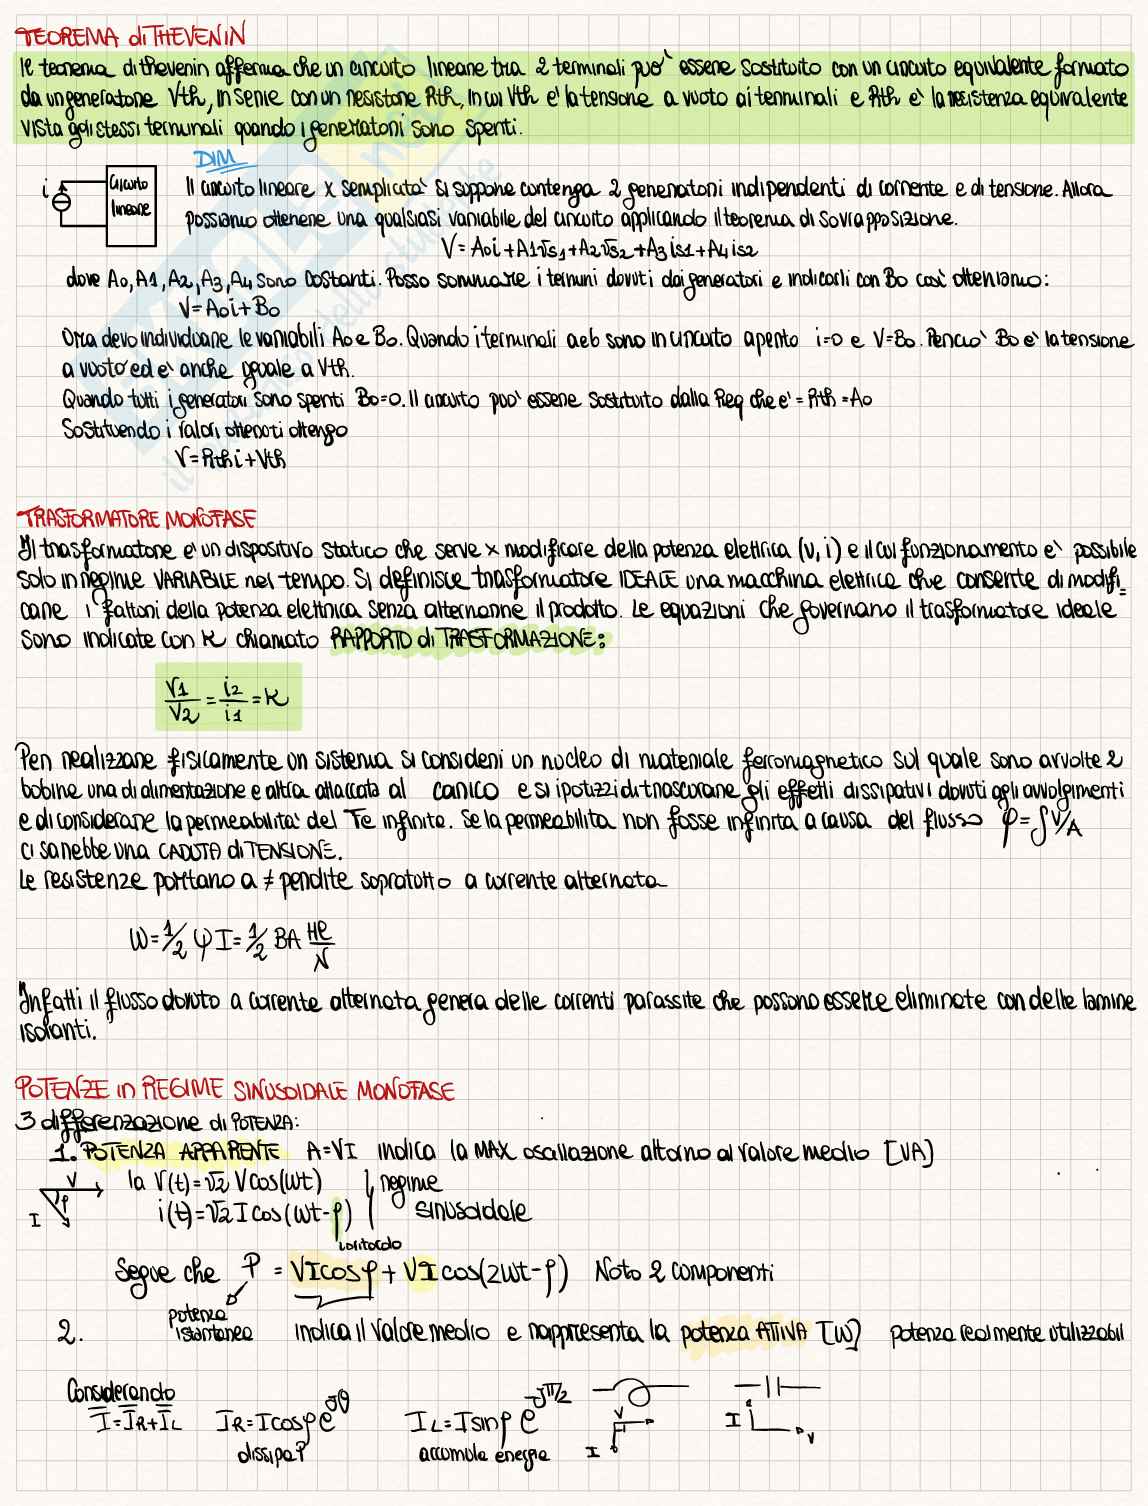 TEOREMA di THEVENIN
Il teorema di thevenin afferma che un circuito lineare tra 2 terminali può essere sostituito con un circuito equivalente formato
da un generatore Vth, in serie con un resistore Rth, in cui Vth è la tensione a vuoto ai terminali e Rth è la resistenza equivalente
vista agli stessi terminali quando i generatori sono spenti.
DIM
i
Circuito
lineare
Il circuito lineare x semplicità si suppone contenga 2 generatori indipendenti di corrente e di tensione. Allora
possiamo ottenere una qualsiasi variabile del circuito applicando il teorema di sovrapposizione.
V=A0i+A1vs1+A2vs2+A3is1+A4is2
dove A0, A1, A2, A3, A4 sono costanti. Posso sommare i termini dovuti dai generatori e indicarli con B0 così otteniamo:
V=A0i+B0
Ora devo individuare le variabili A0 e B0. Quando i terminali a e b sono in circuito aperto i=0 e V=B0. Perciò B0 è la tensione
a vuoto ed è anche uguale a Vth.
Quando tutti i generatori sono spenti B0=0. Il circuito può essere sostituito dalla Req che è = Rth = A0
Sostituendo i valori ottenuti ottengo
V=Rthi+Vth
TRASFORMATORE MONOFASE
Il trasformatore è un dispositivo statico che serve x modificare della potenza elettrica (v, i) e il cui funzionamento è possibile
solo in regime VARIABILE nel tempo. Si definisce trasformatore IDEALE una macchina elettrica che consente di modifi=
care i fattori della potenza elettrica senza alternarne il prodotto. Le equazioni che governano il trasformatore ideale
sono indicate con K chiamato RAPPORTO di TRASFORMAZIONE:
V1/V2 = i2/i1 = K
Per realizzare fisicamente un sistema si consideri un nucleo di materiale ferromagnetico sul quale sono avvolte 2
bobine una di alimentazione e altra attaccata al carico e si ipotizzi di trascurare gli effetti dissipativi dovuti agli avvolgimenti
e di considerare la permeabilità del Fe infinita. Se la permeabilita non fosse infinita a causa del flusso φ=∫V/A
ci sarebbe una CADUTA di TENSIONE.
Le resistenze portano a ≠ perdite sopratutto a corrente alternata
W=1/2 φI=1/2 BA Hl/N
Infatti il flusso dovuto a corrente alternata genera delle correnti parassite che possono essere eliminate con delle lamine
isolanti.
POTENZE in REGIME SINUSOIDALE MONOFASE
3 differenzazione di POTENZA:
1. POTENZA APPARENTE A=VI indica la MAX oscillazione attorno al valore medio [VA]
V
φ
I
la V(t)=√2 Vcos(ωt)
i(t)=√2 I cos(ωt-φ)
regime
sinusoidale
in ritardo
Segue che P = VIcosφ + VI cos(2ωt-φ) Noto 2 componenti
potenza
istantanea
2. indica il valore medio e rappresenta la potenza ATTIVA [W] potenza realmente utilizzabil
Considerando
I=IR+IL
IR=Icosφe^jθ
dissipa P
IL=Isinφe^-jπ/2
accumula energia
V
I
I
V